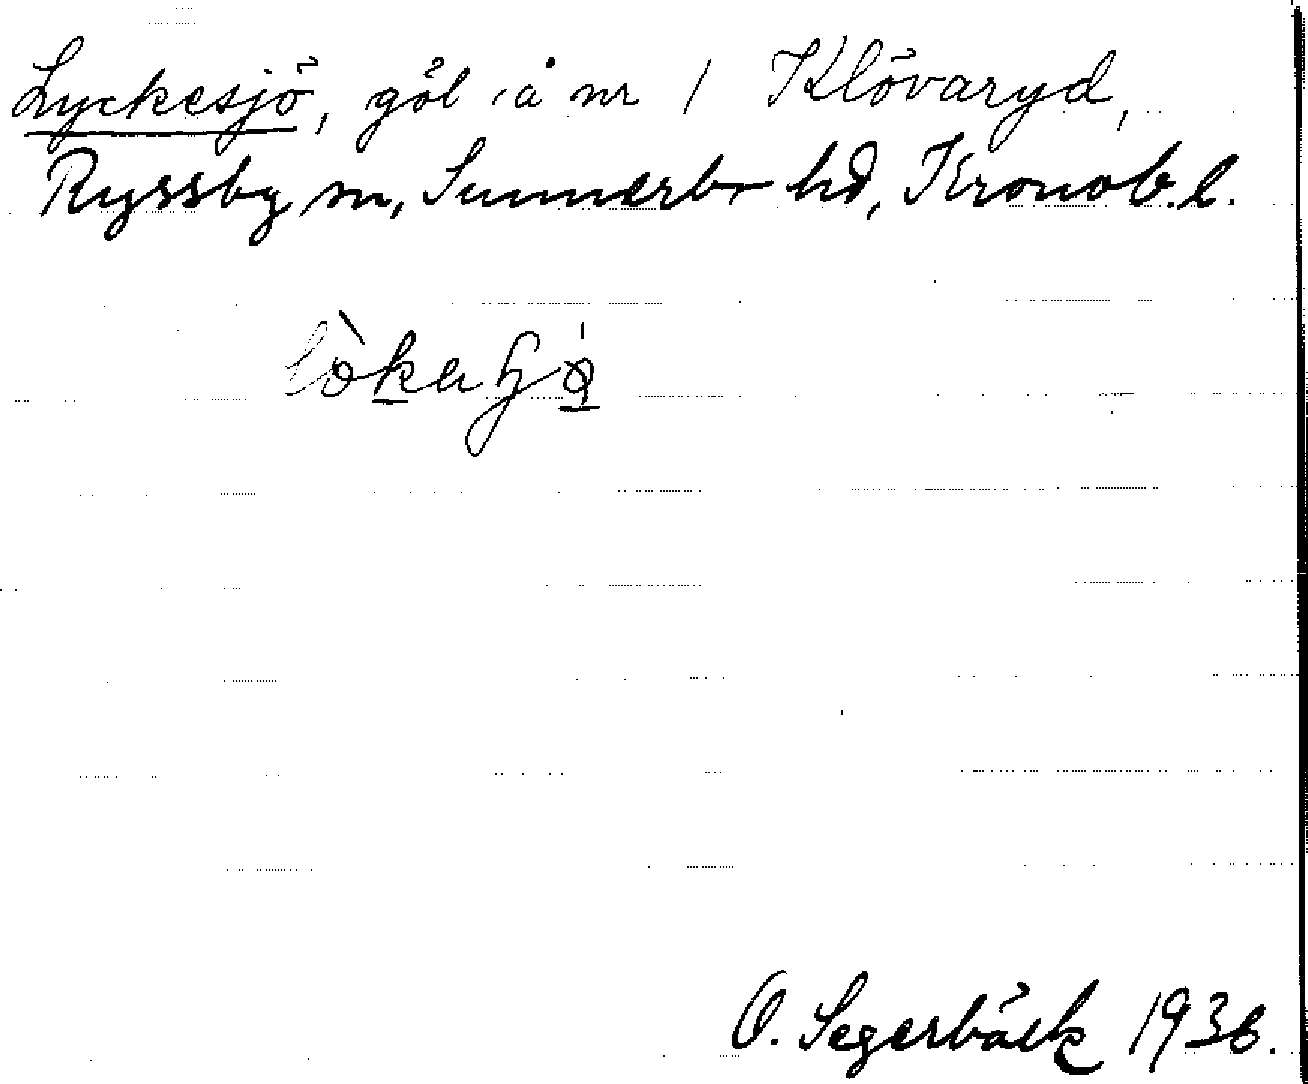 Lyckesjö, göl å nr 1 Klövaryd,
Ryssby sn, Sunnerbo hd, Kronob. l.
O. Segerbäck 1936.